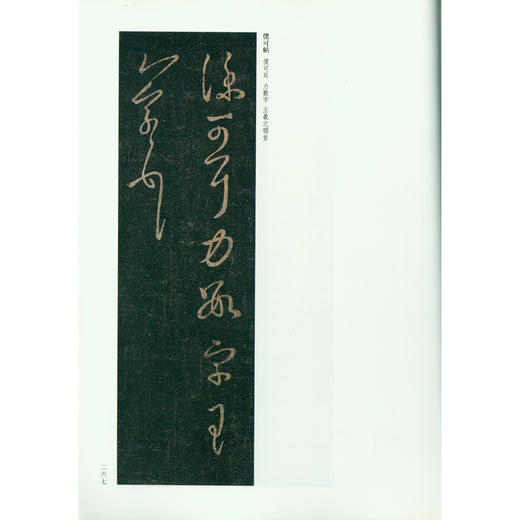 僕可帖 僕可耳 力數字 王羲之頓首
僕可耳力數字王
羲之頓首
二六七